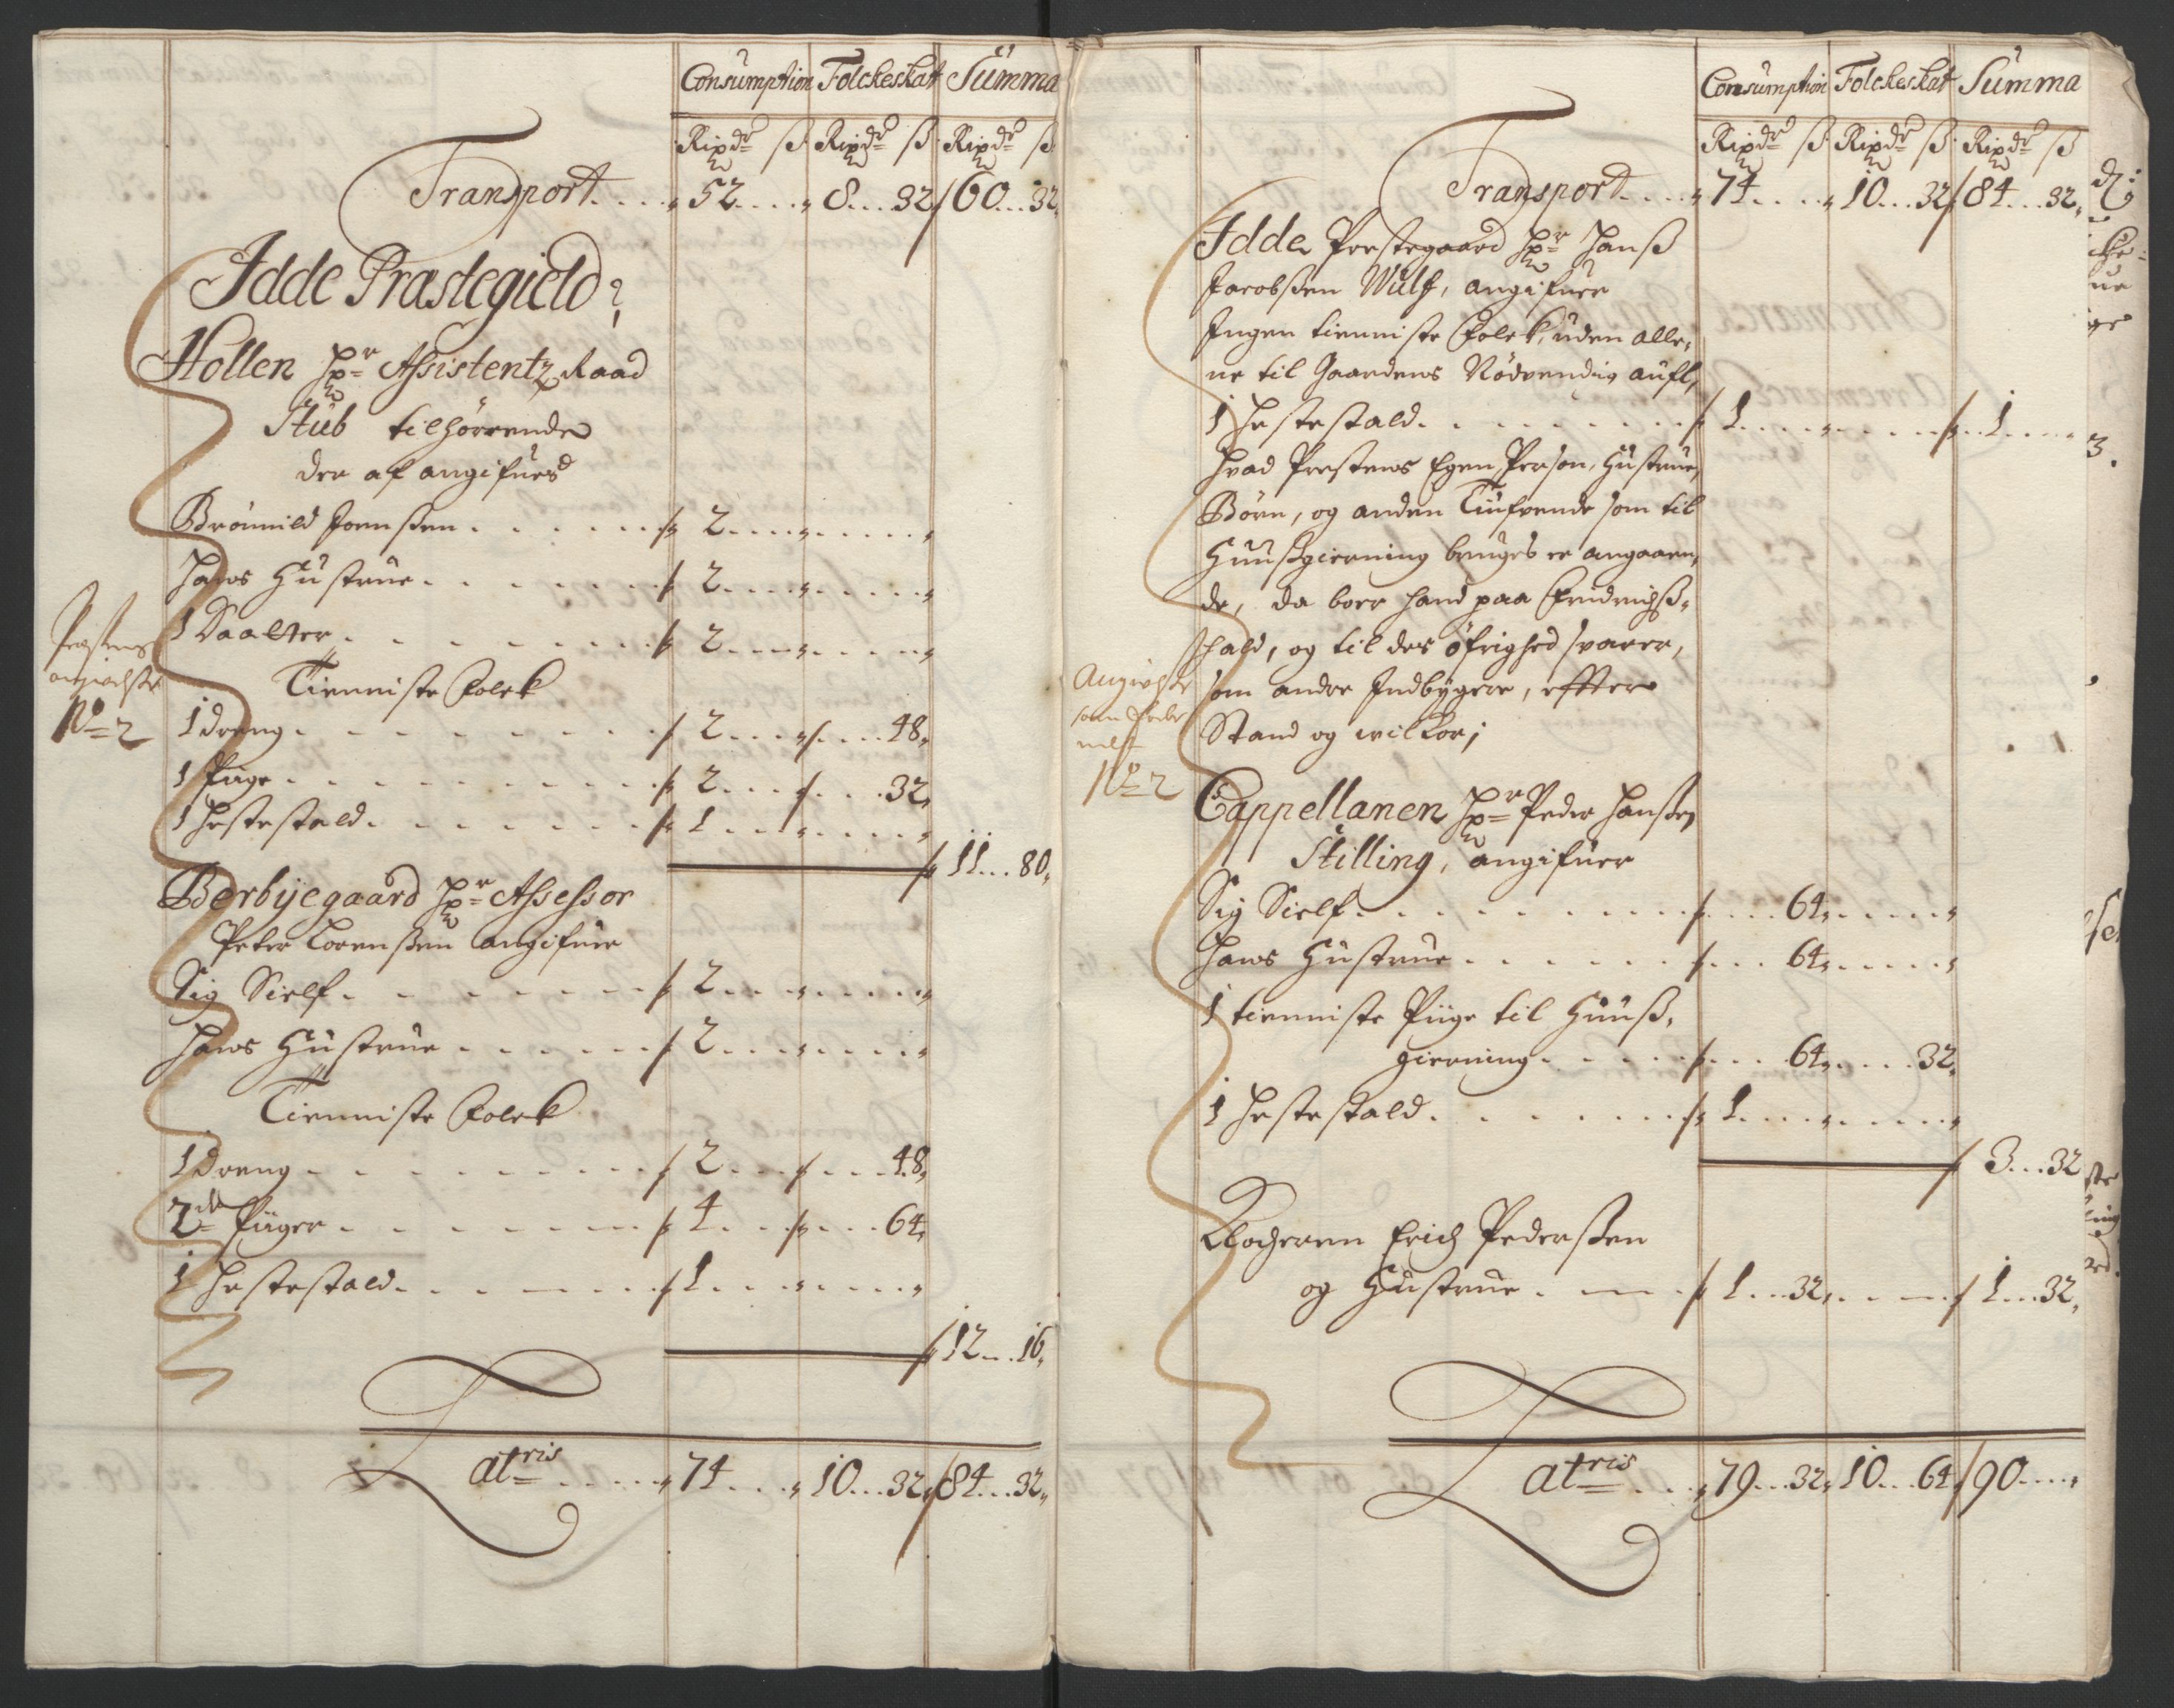 Consumption Folckeskat Summa
Rixdr ß Rixdr ß Rixdr ß
Transport . . . . 52 . . . . 8 . . . 32 60 . . . 32
Idde Præstegield
Hollen Hr Assistentz Raad
Stub tilhørrende
der af angifues
Brönnild Joenssen . . . . . . 2 . . . .
Hans Hustrue . . . . . . . 2 . . . .
1 Daatter . . . . . . . . 2 . . . .
Tienniste Folck
1 dreng . . . . . . . . 2 . . . . 48
1 Piige . . . . . . . . . 2 . . . . 32
1 Hestestald . . . . . . . 1 . . . .
11 . . . 80
Præstens
angivelse
No 2
Berbyegaard Hr Assessor
Peter Lorenssen angifuer
Sig Sielf . . . . . . . . 2 . . . .
Hans Hustrue . . . . . . 2 . . . .
Tienniste Folck
1 Dreng . . . . . . . . . 2 . . . . 48
2de Piiger . . . . . . . 4 . . . . 64
1 Hestestald . . . . . . 1 . . . .
12 . . . 16
Latris . . . . . 74 . . . . 10 . . . 32 84 . . . 32
Consumption Folckeskat Summa
Rixdr ß Rixdr ß Rixdr ß
Transport . . . . 74 . . . . 10 . . . 32 84 . . . 32
Idde Prestegaard Hr Hanß
Jacobßen Wulf, angifuer
Ingen tienniste Folck, uden alle,
ne til Gaardens Nödvendig aufl,
1 Hestestald . . . . . . . . 1 . . . . 1 . . . .
Hvad Prestens Egen Person, Hustrue,
Börn, og anden Tiufvende som til
Huußgierning bruges er angaaen,
de, da boer hand paa Fridrichß,
hald, og til des öfrighed svarer,
som andre Indbygere, effter
Stand og vilkor;
Angivelse
No 2
Cappellanen Hr Peder Hanßen
Stilling, angifuer
Sig Sielf . . . . . . . . . . . . 64 . . . .
Hans Hustrue . . . . . . . . . 64 . . . .
1 tienniste Piige til Huuß,
gierning . . . . . . . . 64 . . . . 32
1 Hestestald . . . . . . . 1 . . . .
3 . . . 32
Klocheren Erich Pederßen
og Hustrue . . . . 1 . . . 32 . . . . 1 . . . 32
Latris . . . . 79 . . . 32 10 . . . 64 90 . . . .